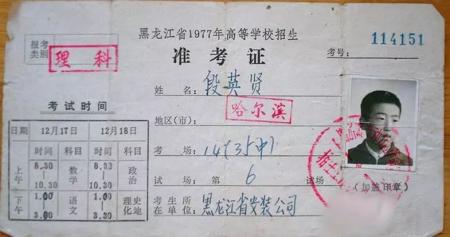 黑龙江省1977年高等学校招生
准考证
考号：114151
报考类别 理科
姓名：段英贤
地区(市)：哈尔滨
考场：
试场：第6试场
考生所在单位：黑龙江省安装公司
(加盖印章)
考试时间
日期 12月17日 12月18日
时间 科目 时间 科目
上午 8.30 — 10.30 数学 8.30 — 10.30 政治
下午 1.00 — 3.00 语文 1.00 — 3.30 理化 史地